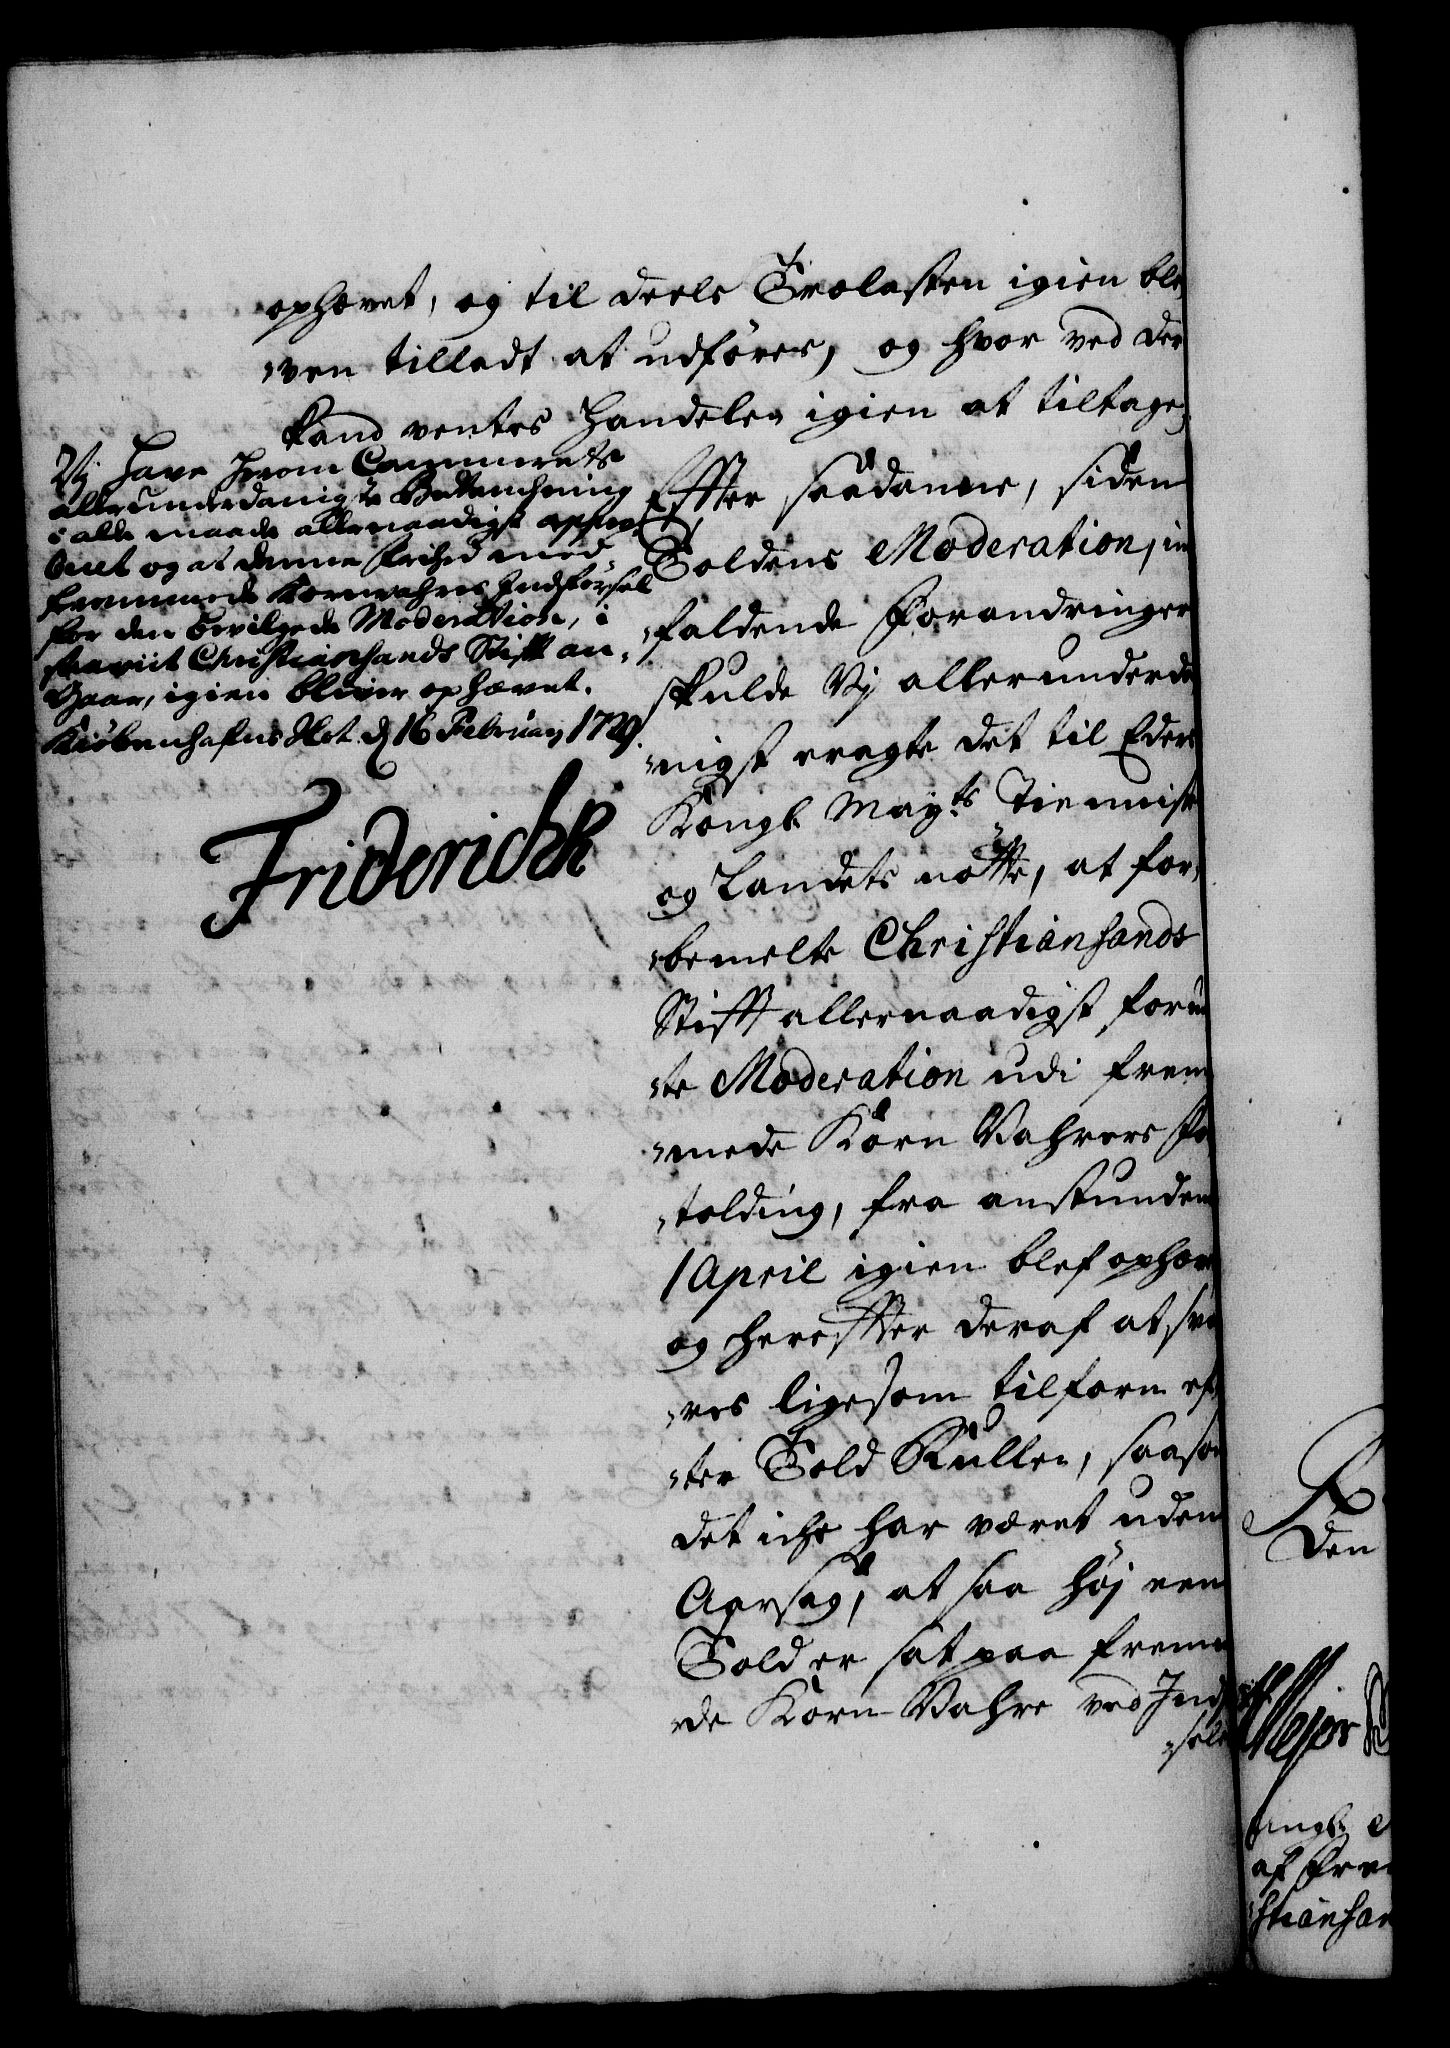 ophævet, og til deels Trælasten igien ble,
„ven tilladt at udføres, og hvor ved der
kand ventes Handelen igien at tiltage;
Vi Have Herom Cammerets
allerunderdanigste Betænchning
i alle maade allernaadigst appro„
beret og at denne frihed med
fremmede Kornvahres Indførsel
for den bevilgede Moderation, i
saaviit Christiansands Stift an„
Gaar, igien bliver ophævet.
Kiøbenhafns Slot d 16 Februarj 1729
Friderich R
Effter saadanne, siden
Toldens Moderation, ind
„faldende Forandringer
skulde Vj allerunderda
„nigst eragte det til Eders
Kongl. Mayts Tienniste
og Landets nøtte, at for„
„bemelte Christiansands
Stifft allernaadigst forundt
„te Moderation udi frem
„mede Korn Vahrers For
„tolding, fra anstundende
1 April igien blef ophævet
og hereffter deraf at sva
„res ligesom tilforn ef
„ter Told Rullen, saasom
det iche har været uden
Aarsag, at saa høj een
Told er sat paa fremme
de Korn Vahre ved Indfør
„sele
Den
Kongl.
af Fre
stiansan